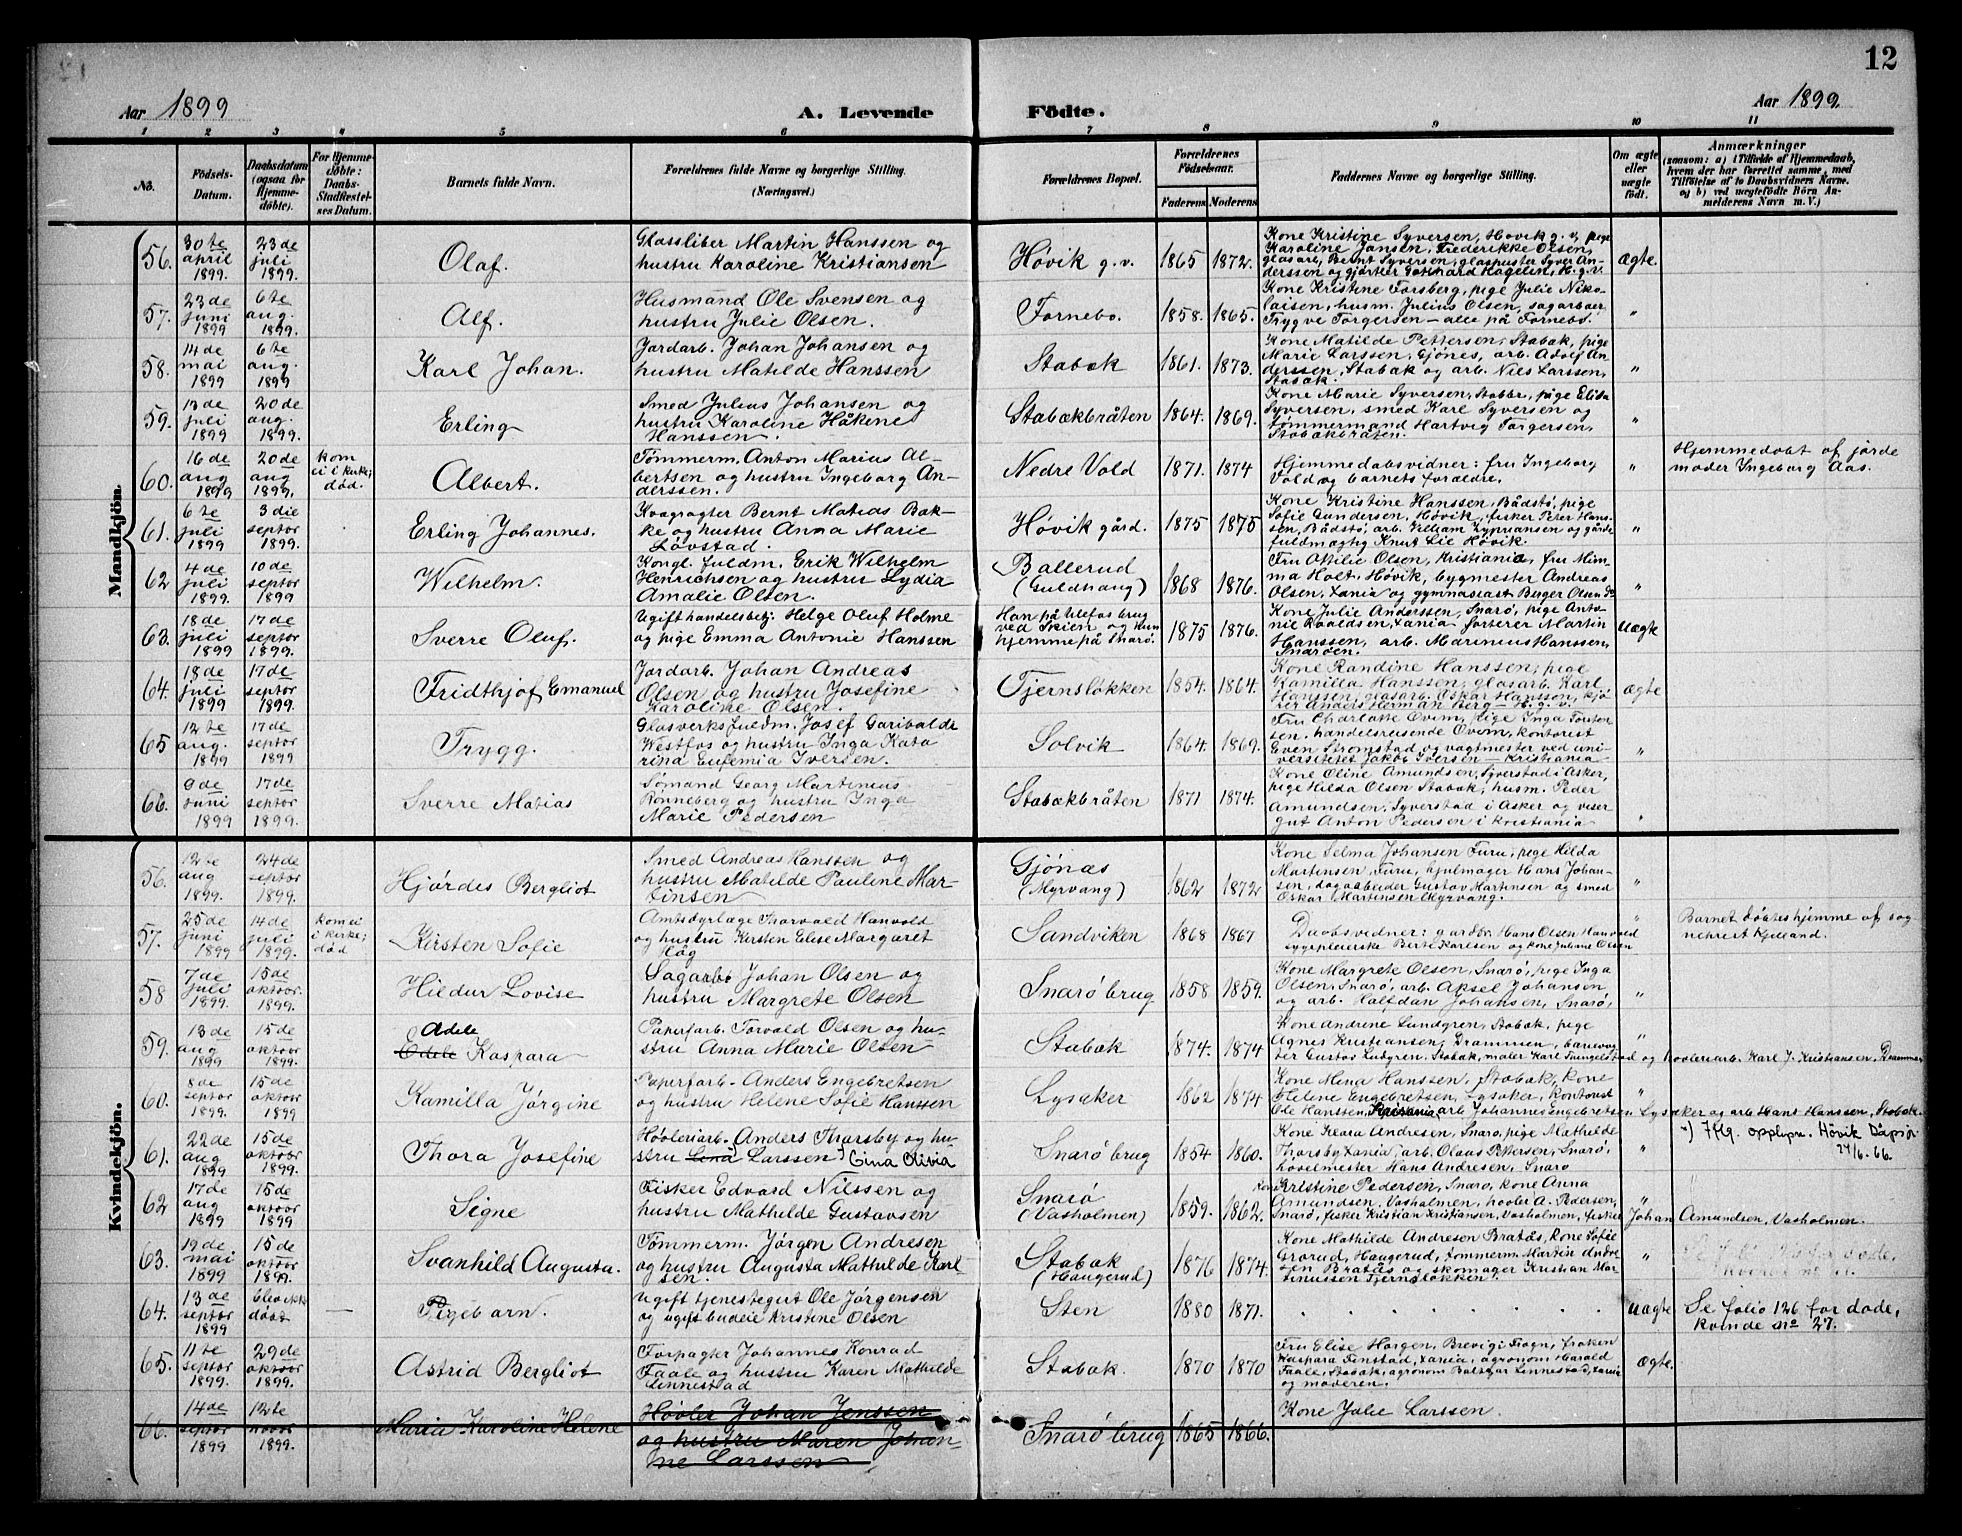 12
Aar 1899
A. Levende
Födte.
Aar 1899.
1 2 3 4 5 6 7 8 9 10 11
No.
Födsels-
Datum.
Daabsdatum
(ogsaa for
Hjemme-
döbte).
For Hjemme-
döbte:
Daabs-
Stadfæstel-
ses Datum.
Barnets fulde Navn.
Forældrenes fulde Navne og borgerlige Stilling.
(Næringsvei.)
Forældrenes Bopæl.
Forældrenes
Födselsaar.
Faderens. Moderens.
Faddernes Navne og borgerlige Stilling.
Om ægte
eller
uægte
födt.
Anmærkninger
(saasom: a) i Tilfælde af Hjemmedaab,
hvem der har forrettet samme, med
Tilföielse af to Daabsvidners Navne.
og b) ved uægtefödte Börn An-
melderens Navn m. V.)
Mandkjön.
56.
30 te
april
1899.
23 de
juli
1899.
Olaf.
Glassliber Martin Hanssen og
hustru Karoline Kristiansen
Høvik g.v.
1865 1872.
Kone Kristine Syversen, Høvik g.v, pige
Karoline Jansen, Frederikke Olsen,
glasarb. Bernt Syversen, glaspuster Syver An-
derssen og gjørtler Gothard Hagelin, H.g.v.
ægte.
57.
23 de
juni
1899
6 te
aug.
1899.
Alf.
Husmand Ole Svensen og
hustru Julie Olsen.
Fornebo.
1858. 1865.
Kone Kristine Forsberg, pige Julie Niko-
laisen, husm. Julius Olsen, sagarbeir
Trygve Torgersen – alle på Fornebo.
"
58.
14 de
mai
1899
6 te
aug.
1899
Karl Johan.
Jordarb. Johan Johansen og
hustru Matilde Hanssen
Stabæk
1861. 1873.
Kone Matilde Pettersen, Stabæk, pige
Marie Larssen, Gjönes, arb. Adolf An-
derssen, Stabæk og arb. Nils Larssen,
Stabæk.
"
59.
13 de
juli
1899
20 de
aug.
1899.
Erling
Smed Julius Johansen og
hustru Karoline Håkine
Hanssen.
Stabækbråten
1864. 1869.
Kone Marie Syversen, Stabbr, pige Elisa
Syversen, smed Karl Syversen og
tømmermand Hartvig Torgersen,
Stabækbråten.
"
60.
16 de
aug
1899
20 de
aug
1899.
kom
ei i kirke;
død.
Albert.
Tømmerm. Anton Marius Al-
bertsen og hustru Ingeborg An-
derssen.
Nedre Vold
1871. 1874
Hjemmedåbsvidner: fru Ingeborg
Vold og barnets forældre.
"
Hjemmedøbt af jorde
moder Ingeborg Aas.
61.
6 te
juli
1899
3 die
septbr
1899.
Erling Johannes.
Kvægrøgter Bernt Matias Bak-
ke og hustru Anna Marie
Løvstad.
Høvik gård.
1875 1875
Kone Kristine Hanssen, Bådstø, pige
Sofie Gundersen, Høvik, fisker Peter Hans-
sen, Bådstø, arb. Vilham Zypriansen og gårds
fuldmægtig Knut Lie Høvik.
"
62
4 de
juli
1899.
10 de
septbr
1899
Wilhelm.
Kongl. fuldm. Erik Wilhelm
Henrichsen og hustru Lydia
Amalie Olsen.
Ballerud
(Guldhaug)
1868 1876.
Fru Ottilie Olsen, Kristiania, fru Mim-
ma Holt, Høvik, bygmester Andreas
Olsen, Xania og gymnasiast Birger Olsen do
"
63.
18 de
juli
1899
17 de
septbr
1899.
Sverre Oluf.
Ugift handelsbetj. Helge Oluf Holme
og pige Emma Antonie Hanssen
Han på Ulefos brug
ved Skien og hun
hjemme på Snarø.
1875 1876.
Kone Julie Anderssen, Snarø, pige Anto-
nie Roaldsen, Xania, forterer Martin
Hanssen, arb. Marinius Hanssen,
Snarøen.
uægte
64.
18 de
juli
1899
17 de
septbr
1899
Fridthjof Emanuel
Jordarb. Johan Andreas
Olsen og hustru Josefine
Karoline Olsen.
Tjernsløkken
1854. 1864.
Kone Randine Hanssen; pige
Kamilla Hanssen; glasarb. Karl
Hanssen, glasarb. Oskar Hanssen, kjø-
rer Anders Herman Berg – H.g.v.
ægte
65
12 te
aug.
1899
17 de
septbr
1899
Trygg.
Glasverksfuldm. Josef Garibaldi
Westfos og hustru Inga Kata
rina Eufemia Iversen.
Solvik
1864. 1869.
Fru Charlotte Ovom, pige Inga
sen, handelsreisende Ovom, kontorist
Even Strømstad og vagtmester ved uni-
versitetet Jakob Iversen – Kristiania
"
66.
9 de
juni
1899
17 de
septbr
1899.
Sverre Matias
Sømand Georg Martinius
Rønneberg og hustru Inga
Marie Pedersen
Stabækbråten
1871 1874.
Kone Oline Amundsen, Syverstad i Asker,
pige Hilda Olsen Stabæk, husm. Peder
Amundsen, Syverstad i Asker og viser
gut Anton Pedersen i Kristiania
"
Kvindekjön.
56.
12 te
aug
1899.
24 de
septbr
1899.
Hjørdis Bergliot
Smed Andreas Hanssen og
hustru Matilde Pauline Mar-
tinsen
Gjønæs
(Myrvang)
1862 1872
Kone Selma Johansen Furu, pige Hilda
Martinsen, Furu, hjulmager Hans Johan-
sen, dagarbeider Gustav Martinsen og smed
Oskar Martinsen Myrvang.
"
57.
25 de
juni
1899
14 de
juli
1899.
kom ei
i kirke;
død
Kirsten Sofie
Amtsdyrlæge Thorvald Hanvold
og hustru Kirsten Elise Margaret
Høg
Sandviken
1868 1867
Daabsvidner: gardbr. Hans Olsen Hanvold
sygepleierske Berte Karlsen og kone Juliane Olsen
"
Barnet døbtes hjemme af sog
nepræst Kjelland.
58
7 de
juli
1899.
15 de
oktobr.
1899.
Hildur Lovise
Sagarb. Johan Olsen og
hustru Margrete Olsen
Snarø brug
1858 1859.
Kone Margrete Olsen, Snarø, pige Inga
Olsen, Snarø, arb. Aksel Johansen
og arb. Halfdan Johansen, Snarø,
"
59.
13 de
aug
1899
15 de
oktobr
1899.
Adele
Edele Kaspara
Papirfarb. Torvald Olsen og hu-
stru Anna Marie Olsen
Stabæk
1874. 1874
Kone Andrine Lundgren, Stabæk, pige
Agnes Kristiansen, Drammen, banevog-
ter Gustav Lundgren, Stabæk, maler Karl Tengelstad og høvleriarb. Karl J. Kristiansen, Drammen
"
60.
8 de
septbr
1899.
15 de
oktobr
1899
Kamilla Jørgine
Papirfarb. Anders Engebretsen
og hustru Helene Sofie Hanssen
Lysaker
1862 1874
Kone Mina Hanssen, Stabæk, kone
Helene Engebretsen, Lysaker, kontorist
Ole Hanssen, Kristiania, arb. Johannes Engebretsen Lysaker og arb. Hans Hanssen, Stabæk.
"
61.
22 de
aug
1899
15 de
oktobr
1899.
Thora Josefine
Høvleriarb. Anders Thorsby og hu-
stru Lena Larssen) Gina Olivia
Snarø brug
1854 1860.
Kone Klara Andresen, Snarø, pige Mathilde
Thorsby Xania, arb. Olaus Pettersen, Snarø,
høvelmester Hans Andresen, Snarø
"
*) Iflg. opplysn. Høvik
24/6. 66.
62
17 de
aug
1899
15 de
oktobr
1899
Signe
Fisker Edvard Nilssen og
hustru Mathilde Gustavsen
Snarø
(Vasholmen)
1859. 1862.
Kone Kristine Pedersen, Snarø, kone Anna
Amundsen, Vasholmen, høvler A. Pedersen,
Snarø, fisker Kristian Kristiansen, Vasholmen, fisker Johan Amundsen, Vasholmen.
"
63.
19 de
mai
1899
15 de
oktobr
1899.
Svanhild Augusta.
Tømmerm. Jørgen Andresen
og hustru Augusta Mathilde Karl-
sen.
Stabæk
(Haugerud)
1876 1874.
Kone Mathilde Andresen Bratås, kone Sofie
Grorud, Haugerud, tømmerm Martin Andre
sen Bratås og skomager Kristian Mar-
tinussen Tjernsløkken.
"
64.
13 de
septbr
1899
blev ikke
døbt
—
Pigebarn.
Ugift tjenestegut Ole Jørgensen
og ugift budeie Kristine Olsen
Sten
1880 1871.
uægte
Se folio 126 for døde,
kvinde no 27.
65.
11 te
septbr
1899.
29 de
oktobr
1899.
Astrid Bergliot
Forpagter Johannes Konrad
Faale og hustru Karen Mathilde
Linnestad
Stabæk.
1870 1870
Fru Elise Horgen, Brevig i Frogn, frøken
Kaspara Finstad, Xania, agronom Harald
Faale, Stabæk, agronom Baltzar Linnestad, Xania
og moderen.
ægte.
66.
14 de
septbr
1899
12 te
novbr
1899.
Maria Karoline Helene
Høvler Johan Jenssen
og hustru Maren Johan-
ne Larssen
Snarø brug
1865 1866.
Kone Julie Larssen.